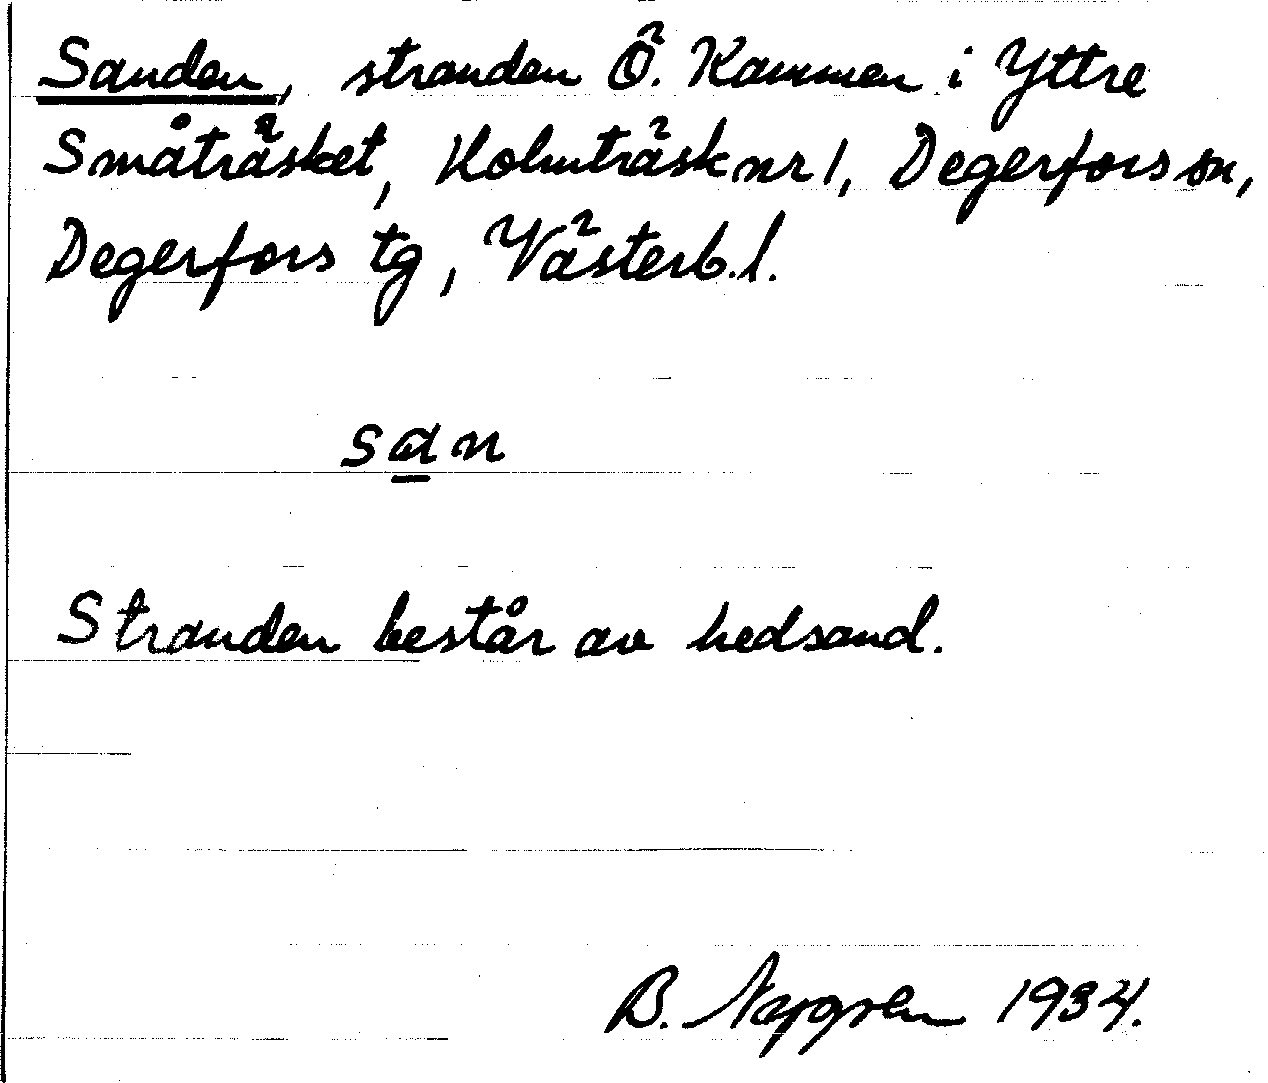 Sanden, stranden Ö. Kammen i Yttre
Småträsket, Holmträsk nr 1, Degerfors sn,
Degerfors tg, Västerb. l.
san
Stranden består av hedsand.
B. Nygren 1934.